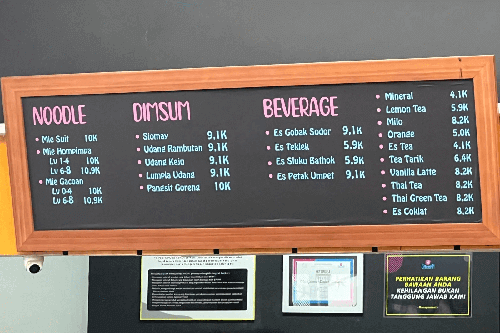 NOODLE
Mie Suit 10K
Mie Hompimpa
Lv 1-4 10K
Lv 6-8 10.9K
Mie Gacoan
Lv 0-4 10K
Lv 6-8 10,9K
DIMSUM
Siomay 9,1K
Udang Rambutan 9,1K
Udang Keju 9,1K
Lumpia Udang 9,1K
Pangsit Goreng 10K
BEVERAGE
Es Gobak Sodor 9,1K
Es Teklek 5.9K
Es Sluku Bathok 5.9K
Es Petak Umpet 9,1K
Mineral 4.1K
Lemon Tea 5.9K
Milo 8.2K
Orange 5.0K
Es Tea 4.1K
Tea Tarik 6,4K
Vanilla Latte 8.2K
Thai Tea 8.2K
Thai Green Tea 8,2K
Es Coklat 8,2K
PERHATIKAN BARANG
BAWAAN ANDA
KEHILANGAN BUKAN
TANGGUNG JAWAB KAMI